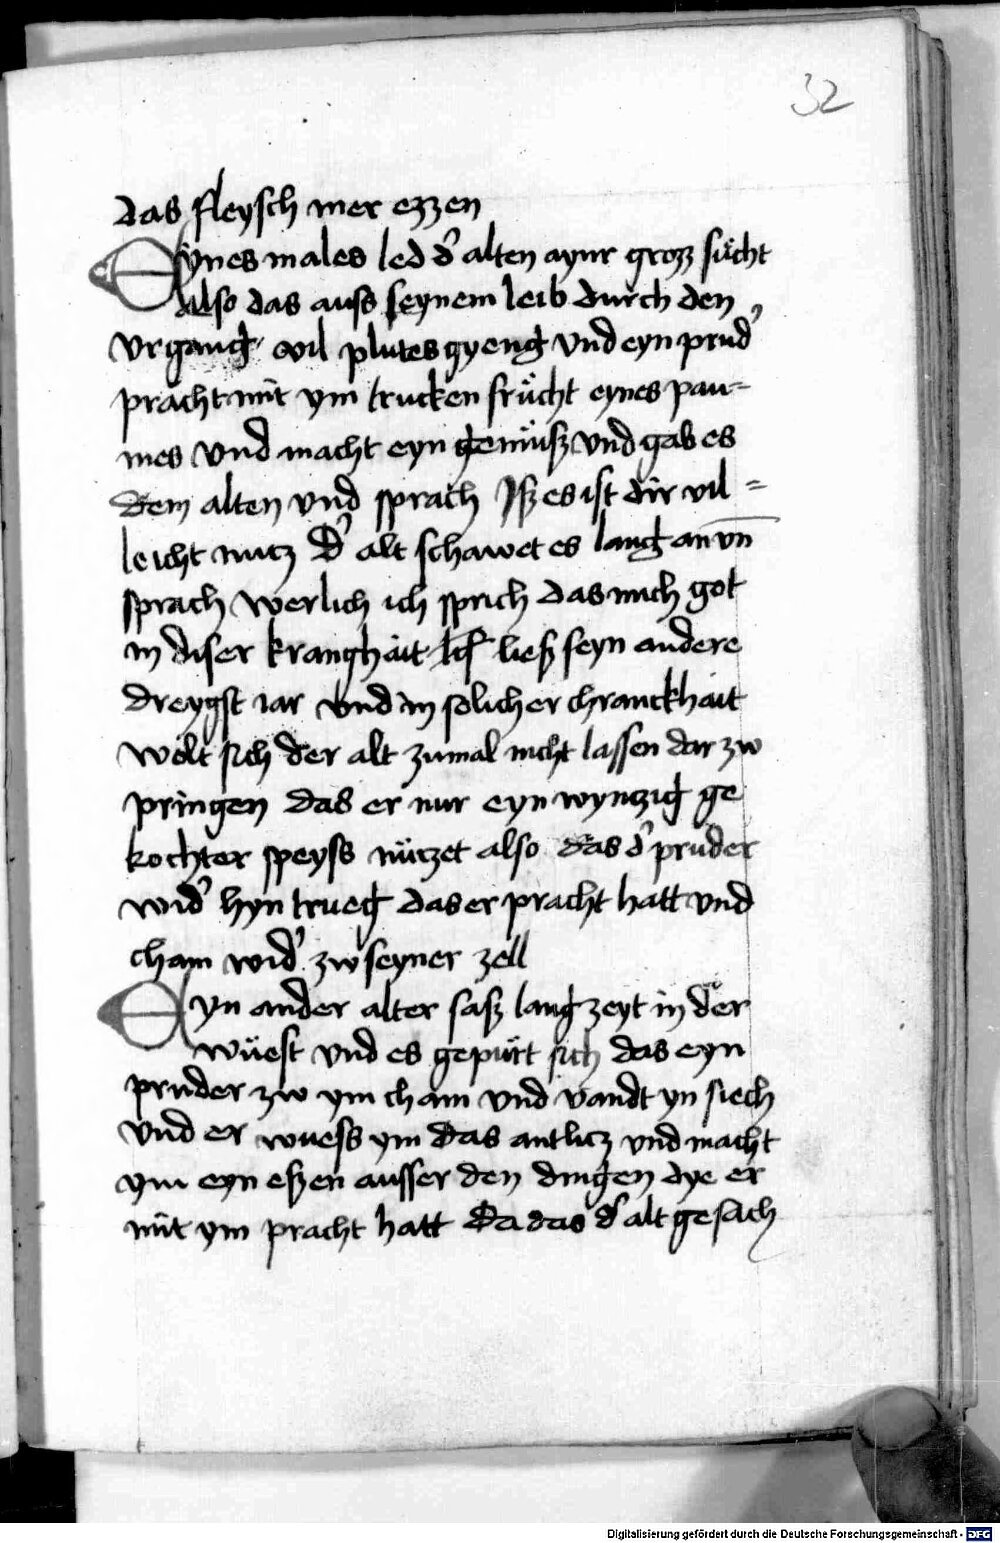 32
das fleysch mer ezzen
Eynes males led d' alten aynr grozz sücht
Also das auss seynem leib durch den
vrgang vil plutes gyeng vnd eyn prud'
pracht mit ym trucken frücht eynes pau=
mes vnd macht eyn gemüsz vnd gab es
dem alten vnd sprach Isz es ist dir vil=
leicht nutz D' alt schawet es lang an vn̄
sprach werlich ich sprich das mich got
in diser kranghait liesz seyn andere
dreygst iar vnd in solicher chranckhait
wolt sich der alt zumal nicht lassen dar zw
pringen das er nur eyn wynczig ge
kochter speyss nützet also das d' prüder
wid' hyn trueg das er pracht hatt vnd
cham wid' zw seyner zell
Eyn ander alter sasz lang zeyt in der
wüest vnd es gepürt sich das eyn
pruder zw ym cham vnd vandt yn siech
vnd er wuess ym das antlicz vnd macht
ym eyn eszen ausser den dingen dye er
mit ym pracht hatt Da das d' alt gesach
Digitalisierung gefördert durch die Deutsche Forschungsgemeinschaft - DFG